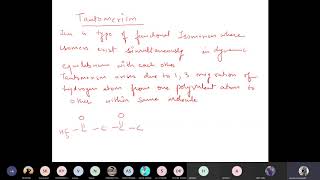 Tautomerism
It is a type of functional Isomerism where
isomers exist simultaneously in dynamic
equilibrium with each other
Tautomerism arises due to 1,3-migration of
hydrogen atom from one polyvalent atom to
other within same molecule
O O
H3C - C - C - C - C